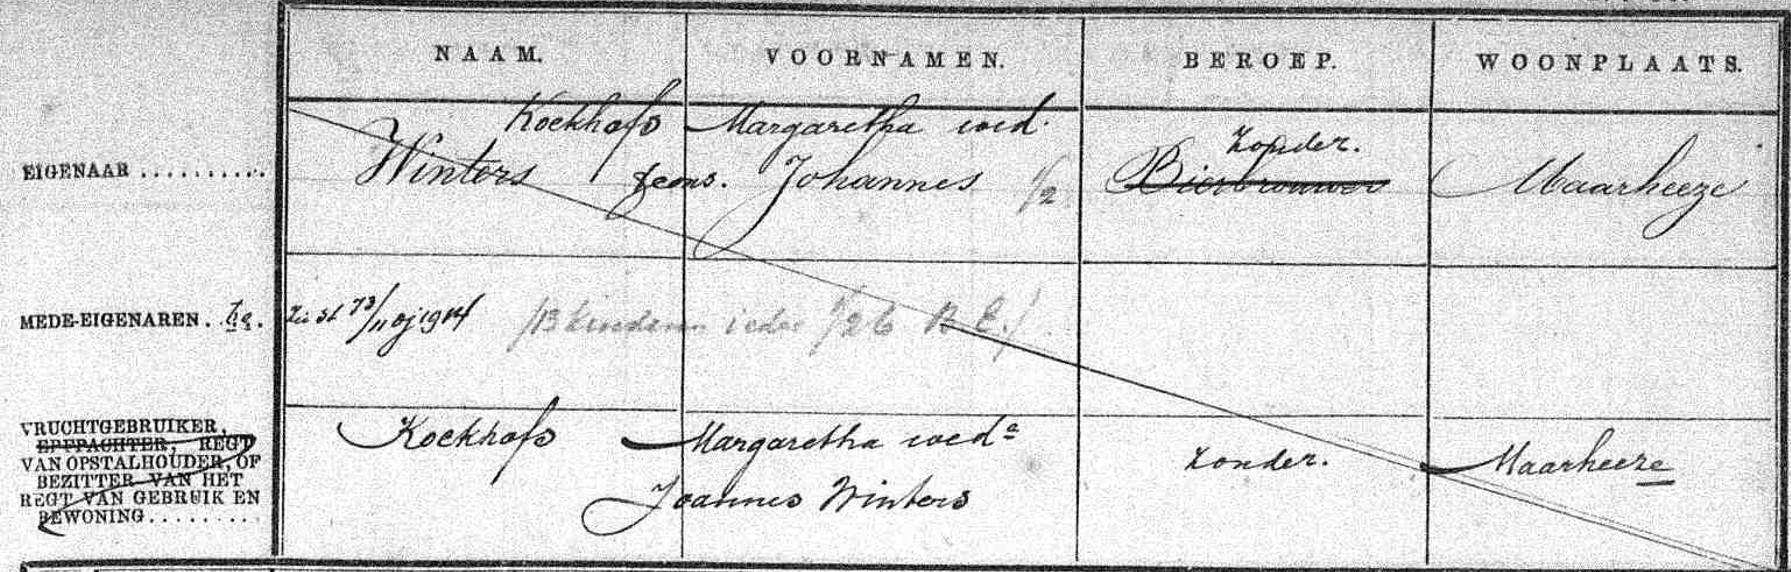 NAAM. VOORNAMEN. BEROEP. WOONPLAATS.
Kockhofs Margaretha wed. zonder.
EIGENAAR .......... Winters Johannes 1/2 Bierbrouwer Maarheeze
MEDE-EIGENAREN. Zie st 73/11 dj 1914 /13 kinderen ieder 1/26 B.E./
VRUCHTGEBRUIKER,
ERFPACHTER, REGT Kockhofs Margaretha wed.e zonder. Maarheeze
VAN OPSTALHOUDER, OF
BEZITTER VAN HET
REGT VAN GEBRUIK EN Joannes Winters
BEWONING........